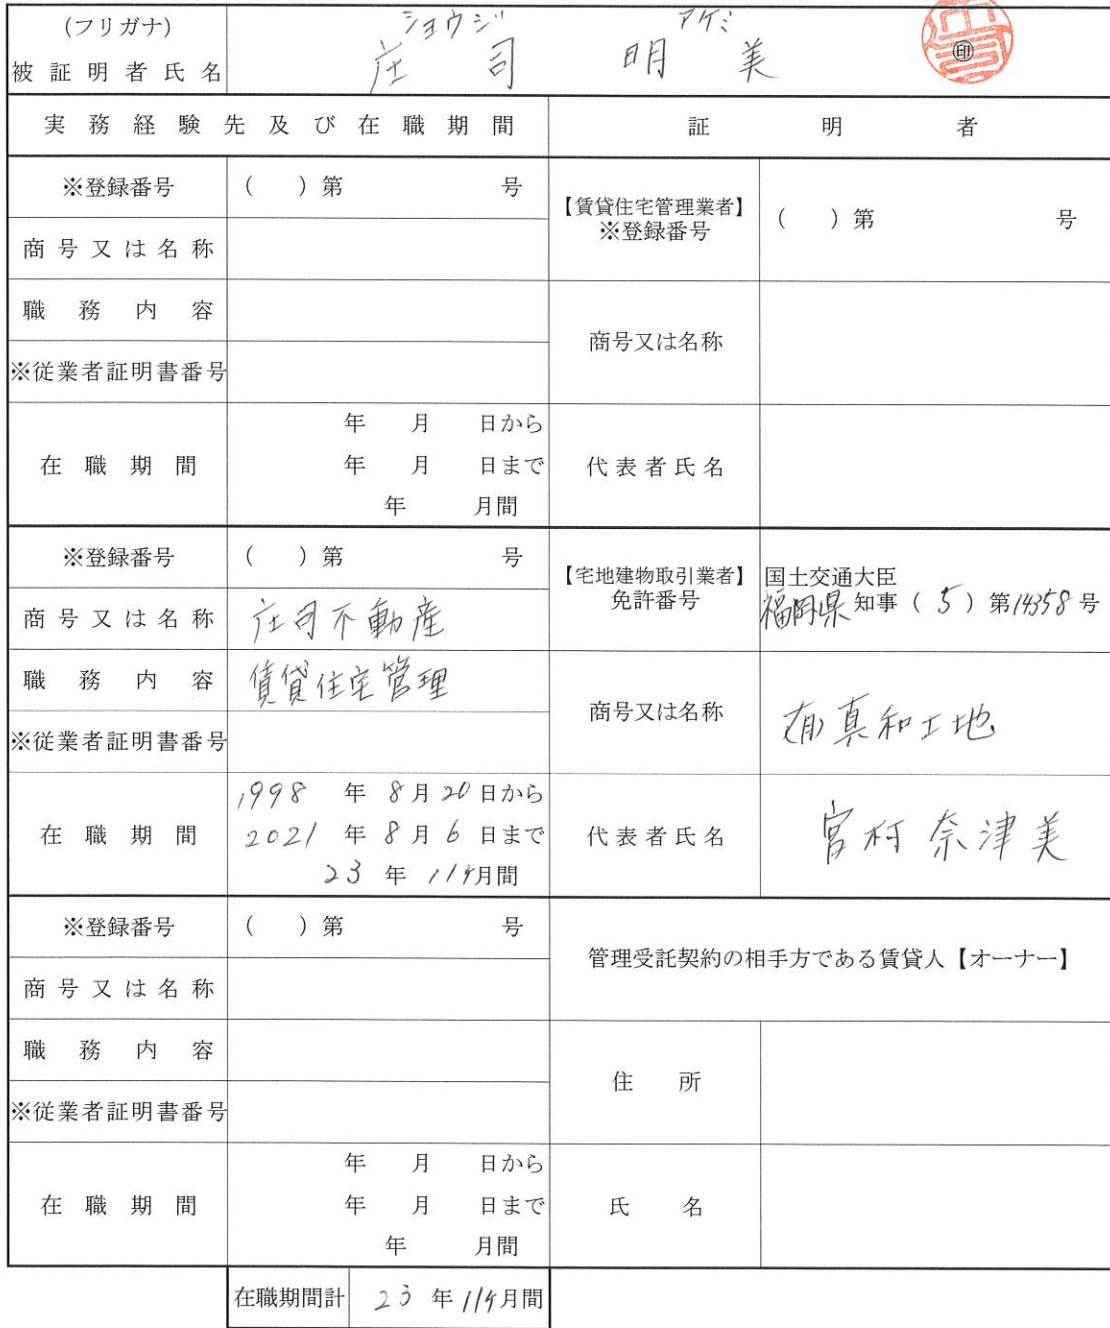 (フリガナ) ショウジ アケミ
被証明者氏名 庄司 明美 ㊞
実務経験先及び在職期間 証明者
※登録番号 ( )第 号
【賃貸住宅管理業者】
※登録番号 ( )第 号
商号又は名称
職務内容
商号又は名称
※従業者証明書番号
在職期間 年 月 日から
年 月 日まで
年 月間
代表者氏名
※登録番号 ( )第 号
【宅地建物取引業者】
免許番号
国土交通大臣
福岡県知事(5)第14358号
商号又は名称 庄司不動産
職務内容 賃貸住宅管理
商号又は名称 (有)真和土地
※従業者証明書番号
在職期間 1998年8月20日から
2021年8月6日まで
23年 月間
代表者氏名 宮村奈津美
※登録番号 ( )第 号
管理受託契約の相手方である賃貸人【オーナー】
商号又は名称
職務内容
住所
※従業者証明書番号
在職期間 年 月 日から
年 月 日まで
年 月間
氏名
在職期間計 23年 月間